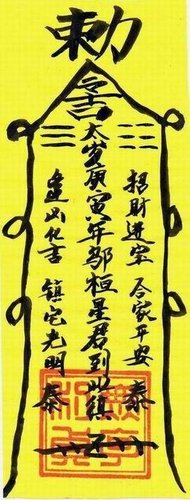 敕
令
太歲庚寅年鄔桓星君到此鎮
招財進寶 合家平安
逢凶化吉 鎮宅光明